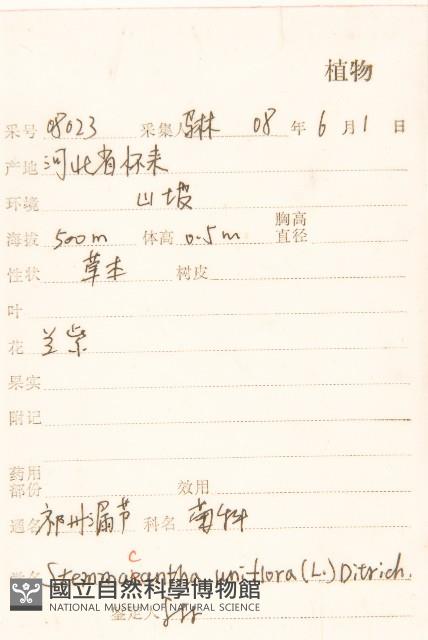 植物
采号 08023 采集人 马林 08 年 6 月 1 日
产地 河北省怀来
环境 山坡
海拔 500m 体高 0.5m 胸高直径
性状 草本 树皮
叶
花 兰紫
果实
附记
药用部份 效用
通名 祁州漏节 科名 菊科
Stemmacantha uniflora (L.) Ditrich.
國立自然科學博物館
NATIONAL MUSEUM OF NATURAL SCIENCE
鉴定人